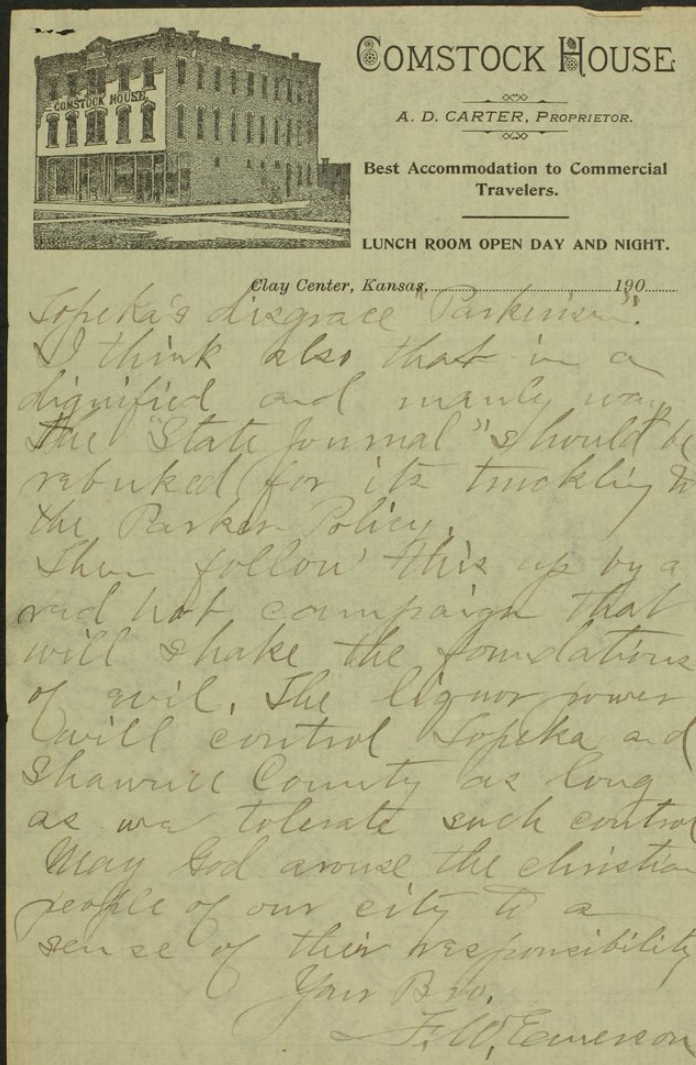 COMSTOCK HOUSE
COMSTOCK HOUSE
A. D. CARTER, PROPRIETOR.
Best Accommodation to Commercial
Travelers.
LUNCH ROOM OPEN DAY AND NIGHT.
Clay Center, Kansas, 190
Topeka's disgrace "Parkerism".
I think also that in a
dignified and manly way
the "State Journal" should be
rebuked for its truckling to
the Parker Policy.
Then follow this up by a
red hot campaign that
will shake the foundations
of evil. The liquor power
will control Topeka and
Shawnee County as long
as we tolerate such control
May God arouse the christian
people of our city to a
sense of their responsibility
Your Bro.
F. W. Emerson